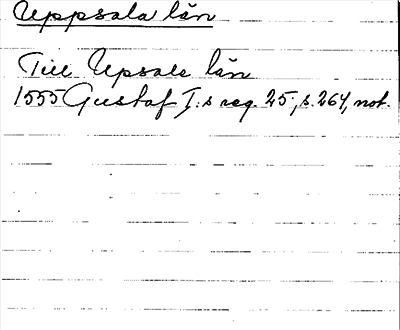 Uppsala län
Till Upsala län
1555 Gustaf I:s reg. 25, s. 264, not.